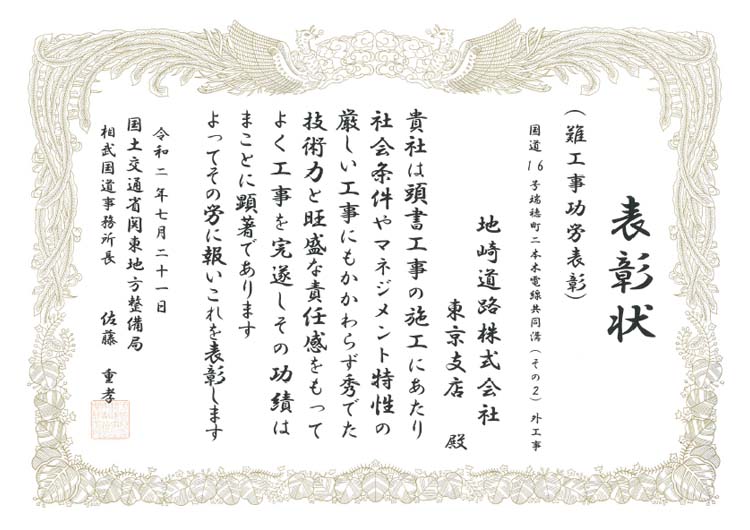 表彰状
(難工事功労表彰)
国道16号瑞穂町二本木電線共同溝(その2)外工事
地崎道路株式会社
東京支店 殿
貴社は頭書工事の施工にあたり
社会条件やマネジメント特性の
厳しい工事にもかかわらず秀でた
技術力と旺盛な責任感をもって
よく工事を完遂しその功績は
まことに顕著であります
よってその労に報いこれを表彰します
令和二年七月二十一日
国土交通省関東地方整備局
相武国道事務所長 佐藤 重孝